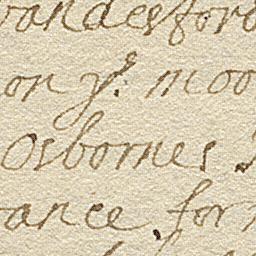 vandesford
on yᵉ. moo
Osbornes
tance for